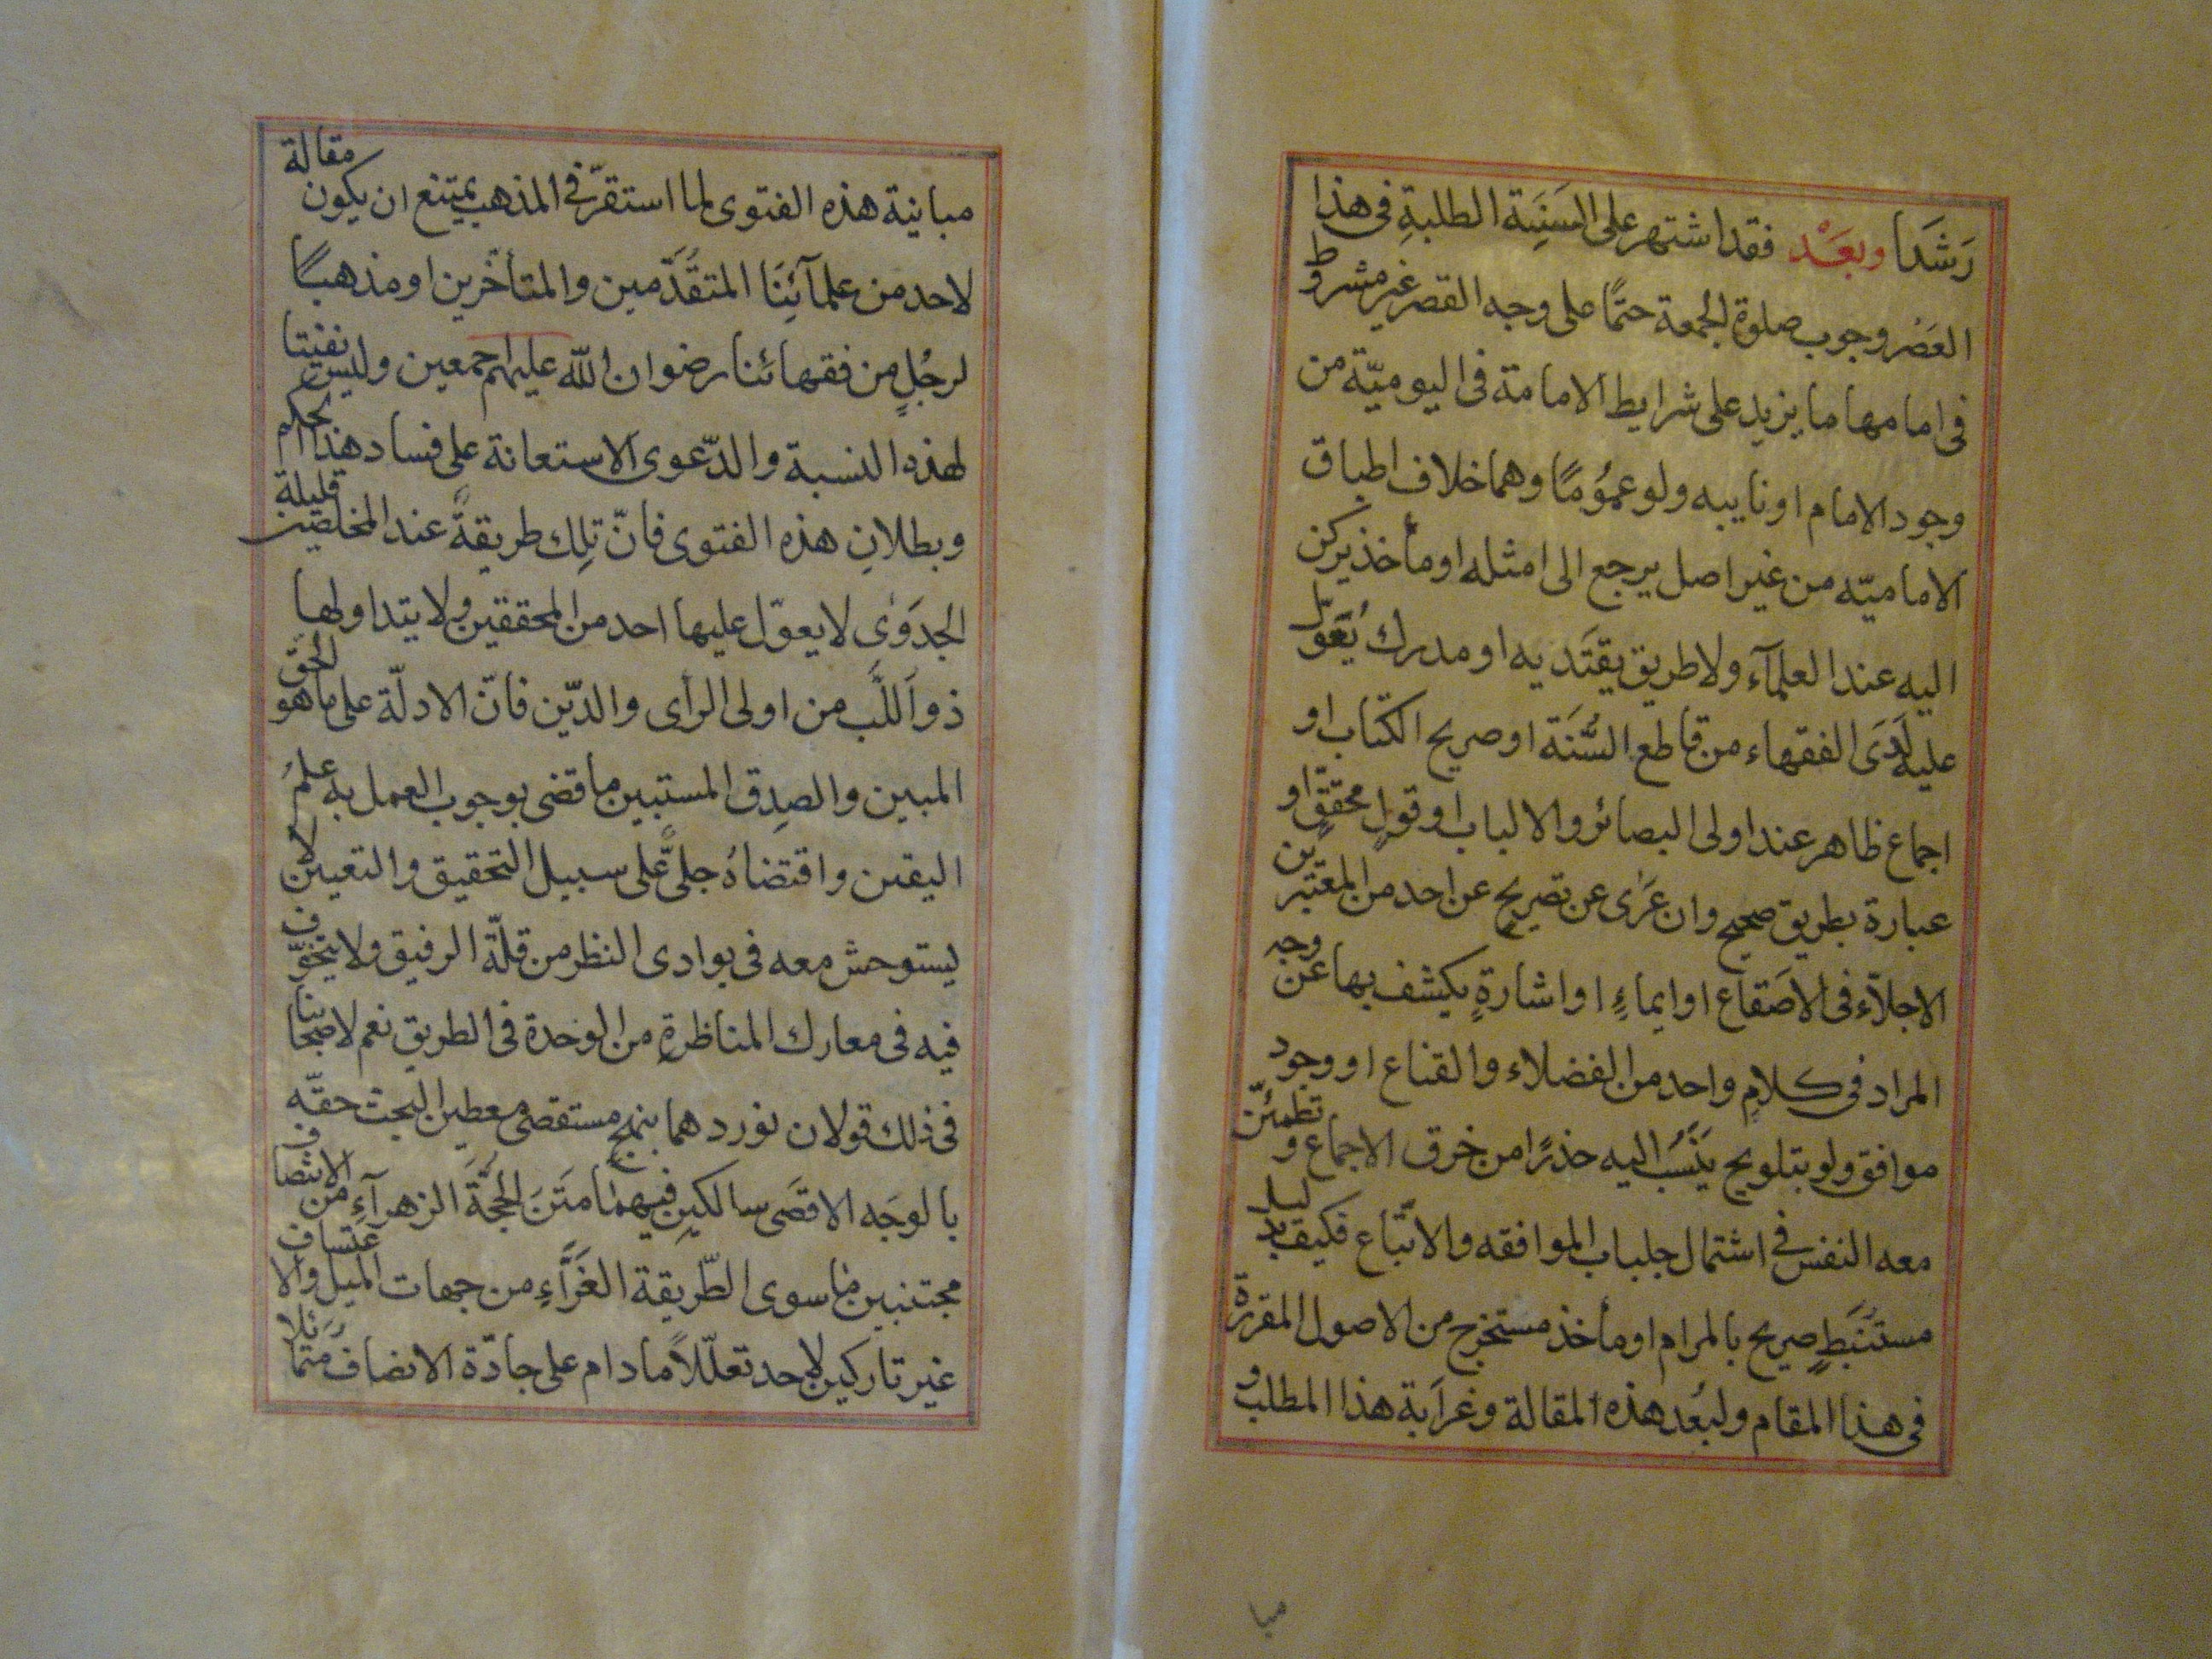 رَشَدا وبعَدْ فقد اشتهر على السَنِيَة الطلبةِ فى هذا
العَصْر وجوب صلوة الجمعة حتمًا على وجه القصر غير مشروط
فى امامها ما يزيد على شرايط الامامة فى اليوميّة من
وجود الامام او نايبه ولو عمُومًا وهما خلاف اطباق
الاماميّه من غير اصل يرجع الى امثله او مأخذ يركن
اليه عند العلمآء ولا طريق يقتَد يه او مدرك يُعَوّل
عليه لَدَى الفقهاء من قاطع السُّنَة او صريح الكتاب او
اجماع ظاهر عند اولى البصائر والالباب او قولِ محققٍ او
عبارة بطريق صحيح وان عَرَى عن تصريح عن احد من المعتبرين
الاجلّاء فى الاَصَقاع او ايماءٍ او اشارةٍ يكشف بها عن وجه
المراد فى كلامِ واحد من الفضلاء والقناع او وجود
موافق ولو بتلويح ينَسُب اليه حذرًا من خرق الاجماع و تطمئنّ
معه النفس فى اشتمال جلباب الموافقه والاتّباع فكيف بدليل
مستنبَطٍ صريح بالمرام او مأخذ مستخرج من الاصول المقررة
فى هذا المقام ولبُعد هذه المقالة وغَرابة هذا المطلب و
مبا
مباينة هذه الفتوى لما استقرّ فى المذهب يمتنع ان يكون مقالة
لاحد من علمآئِنَا المتقَدّمين والمتأخّرين او مذهبًا
لرجُلٍ من فقهائنا رضوان اللّه عليهم اجمعين وليس نفيتا
لهذه النسبة والدّعوى الاستعانة على فساد هذا الحكم
وبطلانِ هذه الفتوى فانّ تِلك طريقةً عند المخلصين قليلة
الجدَوٰى لا يعوّل عليها احد من المحققين ولا يتداولها
ذو اللُّب من اولى الرأى والدّين فانّ الادلّة على ما هو الحق
المبين والصِدق المستبين ما قضى بوجوب العمل به علمُ
اليقين واقتضاهُ جلىًّ على سبيل التحقيق والتعيين لا
ليستوحش معه فى بوادى النظر من قلّة الرفيق ولا يتخوّف
فيه فى معارك المناظرةِ من الوحدة فى الطريق نعم لاصحابنا
فى ذلك قولان نوردهما بنهج مستقصى معطين البحث حقّه
بالوجَه الاقصَى سالكينِ فيهما متَنَ الحجَّةَ الزهرآءِ من الانتصاف
مجتنبين ما سوى الطّريقة الغَرَّاءِ من جهات الميل والاعتساف
غير تاركين لاحد تعلّلاً ما دام على جادّة الانصاف متمائلا